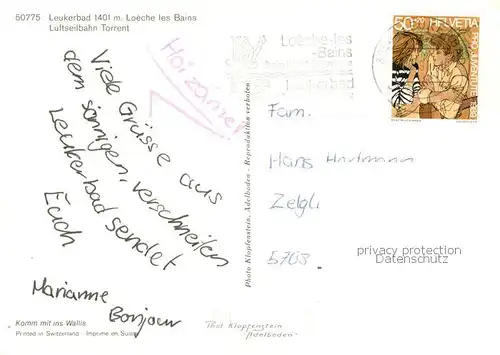 50775 Leukerbad 1401 m. Loèche les Bains
Luftseilbahn Torrent
Viele Grüsse aus
dem sonnigen, verschneiten
Leukerbad sendet
Euch
Marianne
Bonjour
Komm mit ins Wallis
Printed in Switzerland - Imprimé en Suisse
Photo Klopfenstein, Adelboden - Reproduktion verboten
Loèche-les
-Bains
Leukerbad
50+20 HELVETIA
Fam.
Hans Hartmann
Zelgli
5703
privacy protection
Datenschutz
Phot Klopfenstein
Adelboden